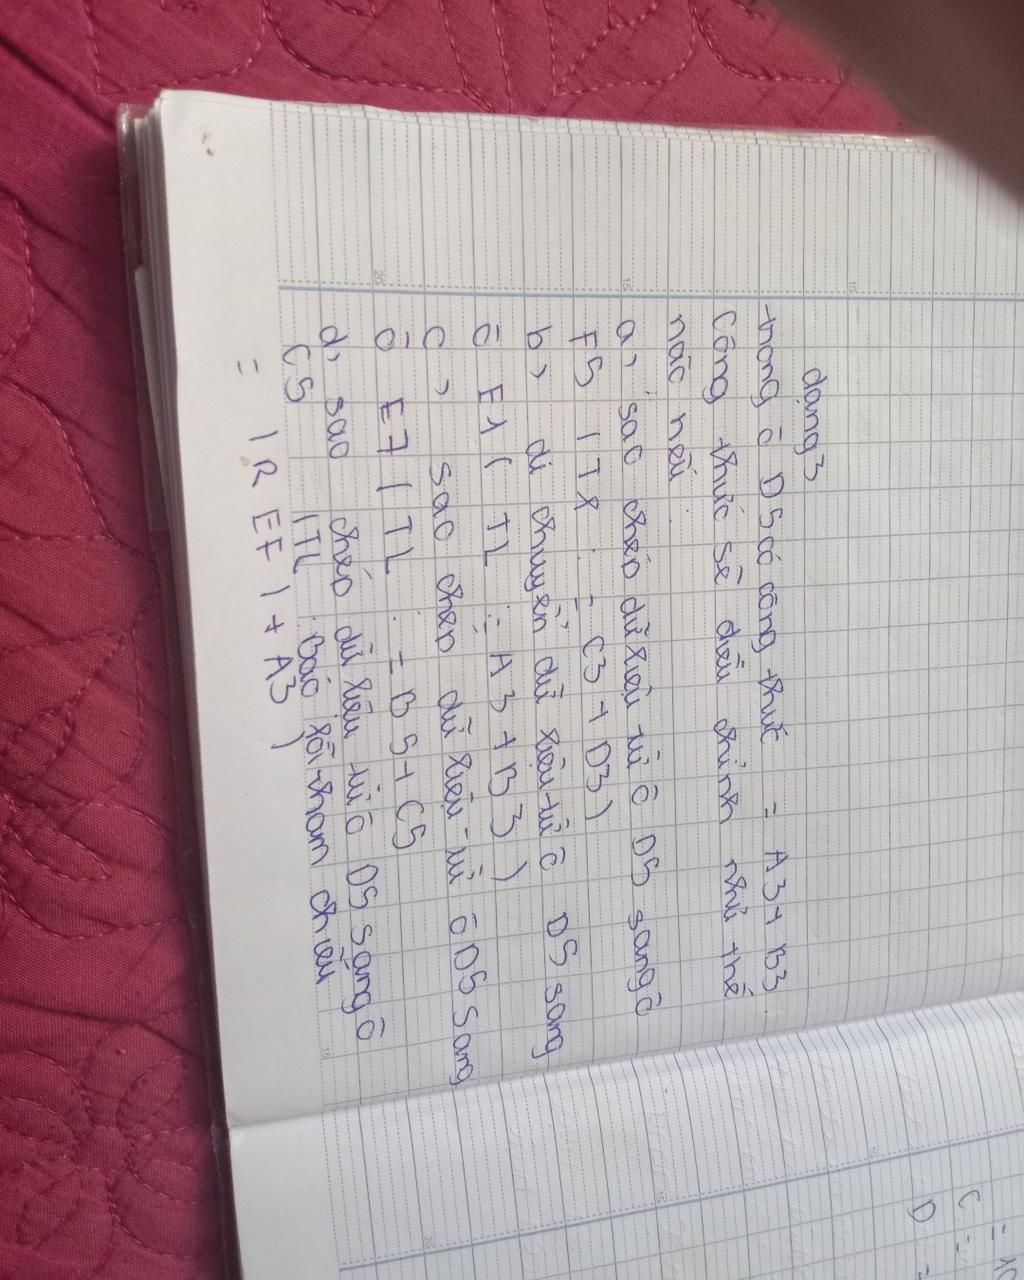 dạng 3
trong ô D5 có công thức = A3+B3
Công thức sẽ điều chỉnh như thế
nào nếu
a, sao chép dữ liệu từ ô D5 sang ô
F5 (TL : = C3 + D3)
b, di chuyển dữ liệu từ ô D5 sang
ô E1 ( TL : = A3 + B3 )
c, sao chép dữ liệu từ ô D5 sang
ô E7 ( TL : = B5 + C5
d, sao chép dữ liệu từ ô D5 sang ô
C5 (TL : Báo lỗi tham chiếu
= IREF1 + A3 )
C =
D =
= 10